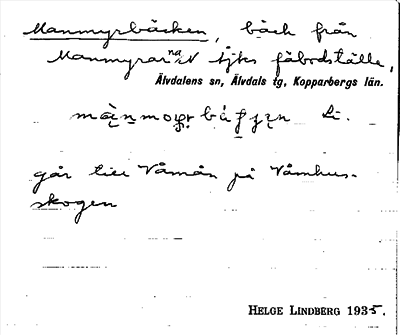 Manmyrbäcken, bäck från
Manmyrarna N Ijks fäbodställe,
Älvdalens sn, Älvdals tg, Kopparbergs län.
Li.
går till Våmån på Våmhus-
skogen
HELGE LINDBERG 1935.